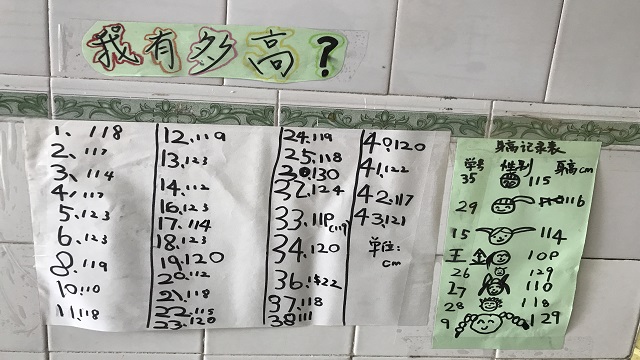 我有多高?
1、118
2、117
3、114
4、117
5、123
6、123
8、119
10、110
11、118
12、119
13、123
14、112
16、123
17、114
18、123
19、120
20、112
21、118
22、115
23、120
24、119
25、118
130
32、124
33、119(119)
34、120
36、122
37、118
38、111
40、120
41、122
42、117
43、121
单位:
cm
身高记录表
学号 性别 身高cm
35 115
29 116
15 114
王 109
26 129
17 110
28 118
9 129